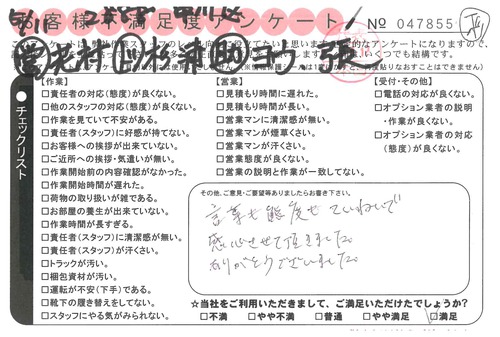 お客様不満足度アンケート
№ 047855
【作業】
□責任者の対応(態度)が良くない。
□他のスタッフの対応(態度)が良くない。
□作業を見ていて不安がある。
□責任者(スタッフ)に好感が持てない。
□お客様への挨拶が出来ていない。
□ご近所への挨拶・気遣いが無い。
□作業開始前の内容確認がなかった。
□作業開始時間が遅れた。
□荷物の取り扱いが雑である。
□お部屋の養生が出来ていない。
□作業時間が長すぎる。
□責任者(スタッフ)に清潔感が無い。
□責任者(スタッフ)が汗くさい。
□トラックが汚い。
□梱包資材が汚い。
□運転が不安(下手)である。
□靴下の履き替えをしてない。
□スタッフにやる気がみられない。
【営業】
□見積もり時間に遅れた。
□見積もり時間が長い。
□営業マンに清潔感が無い。
□営業マンが煙草くさい。
□営業マンが汗くさい。
□営業態度が良くない。
□営業の説明と作業が一致してない。
【受付・その他】
□電話の対応が良くない。
□オプション業者の説明
・作業が良くない。
□オプション業者の対応
(態度)が良くない。
チェックリスト
その他、ご意見・ご要望等ありましたらお書き下さい。
言葉も態度もていねいで
感心させて頂きました。
ありがとうございました。
☆当社をご利用いただきまして、ご満足いただけたでしょうか?
□不満 □やや不満 □普通 □やや満足 □満足